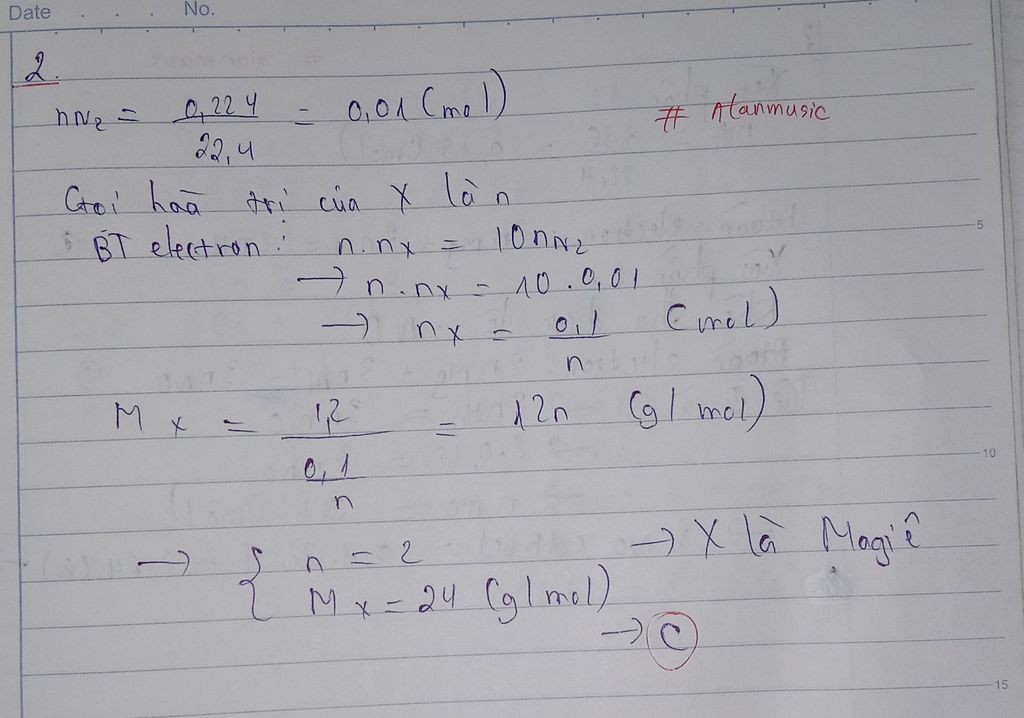 Date . . . No.
2.
nN₂ = 0,224 / 22,4 = 0,01 (mol)
# Alanmusic
Gọi hoá trị của X là n
BT electron: n.nx = 10nN₂
→ n.nx = 10.0,01
→ nx = 0,1 / n (mol)
Mx = 1,2 / (0,1 / n) = 12n (g/mol)
→ { n = 2 → X là Magiê
Mx = 24 (g/mol)
→ C
5
10
15